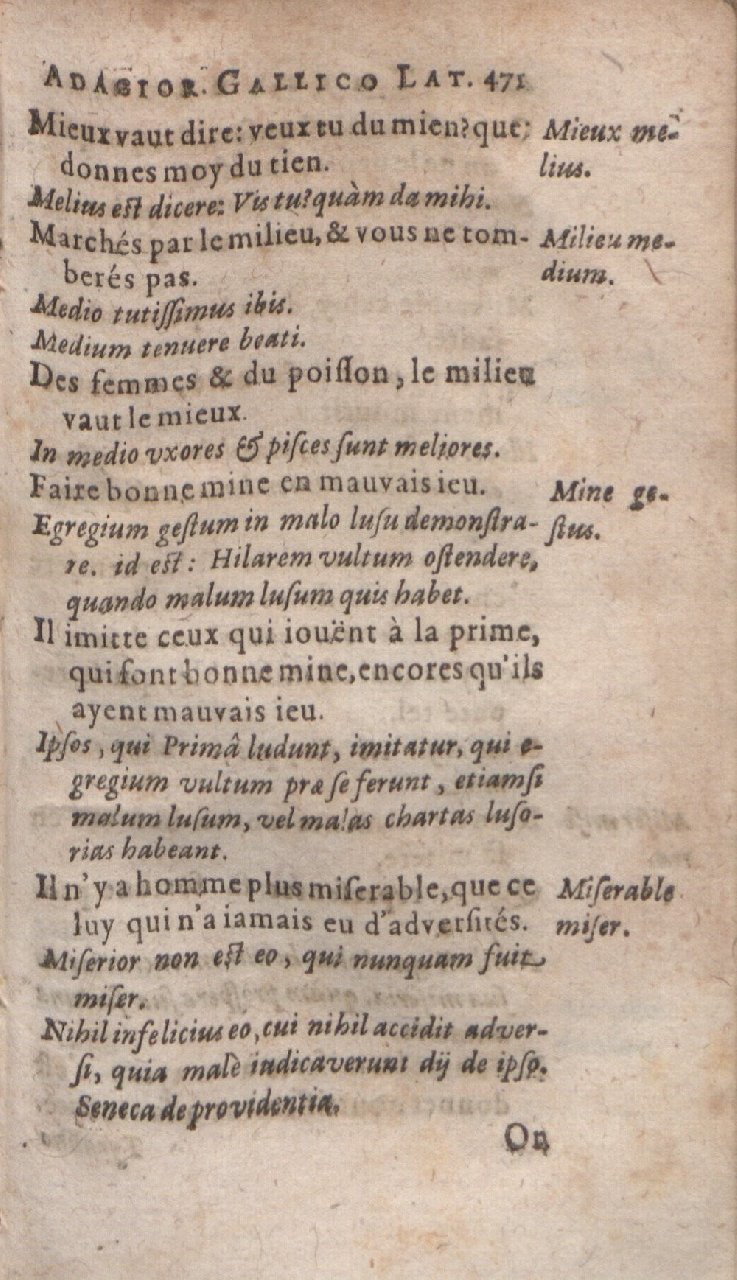 ADAGIOR. GALLICO LAT. 471
Mieux vaut dire: veux tu du mien? que:
donnes moy du tien.
Mieux me-
lius.
Melius est dicere: Vis tu? quàm da mihi.
Marchés par le milieu, & vous ne tom-
berés pas.
Milieu me-
dium.
Medio tutißimus ibis.
Medium tenuere beati.
Des femmes & du poiſſon, le milieu
vaut le mieux.
In medio vxores & piſces ſunt meliores.
Faire bonne mine en mauvais ieu.
Mine ge-
ſtus.
Egregium geſtum in malo luſu demonſtra-
re. id est: Hilarem vultum oſtendere,
quando malum luſum quis habet.
Il imitte ceux qui iouënt à la prime,
qui font bonne mine, encores qu'ils
ayent mauvais ieu.
Ipſos, qui Primâ ludunt, imitatur, qui e-
gregium vultum præ ſe ferunt, etiamſi
malum luſum, vel malas chartas luſo-
rias habeant.
Il n'y a homme plus miſerable, que ce
luy qui n'a iamais eu d'adverſités.
Miſerable
miſer.
Miſerior non est eo, qui nunquam fuit
miſer.
Nihil infelicius eo, cui nihil accidit adver-
ſi, quia malè iudicaverunt dij de ipſo.
Seneca de providentia.
On